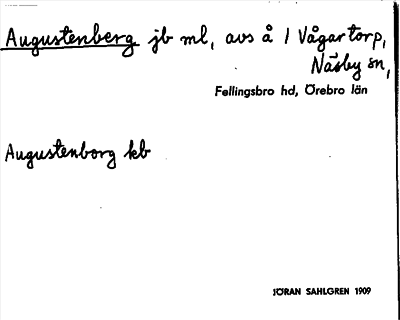 Augustenberg jb ml, avs å 1 Vågartorp,
Näsby sn,
Fellingsbro hd, Örebro län
Augustenborg kb
JÖRAN SAHLGREN 1909